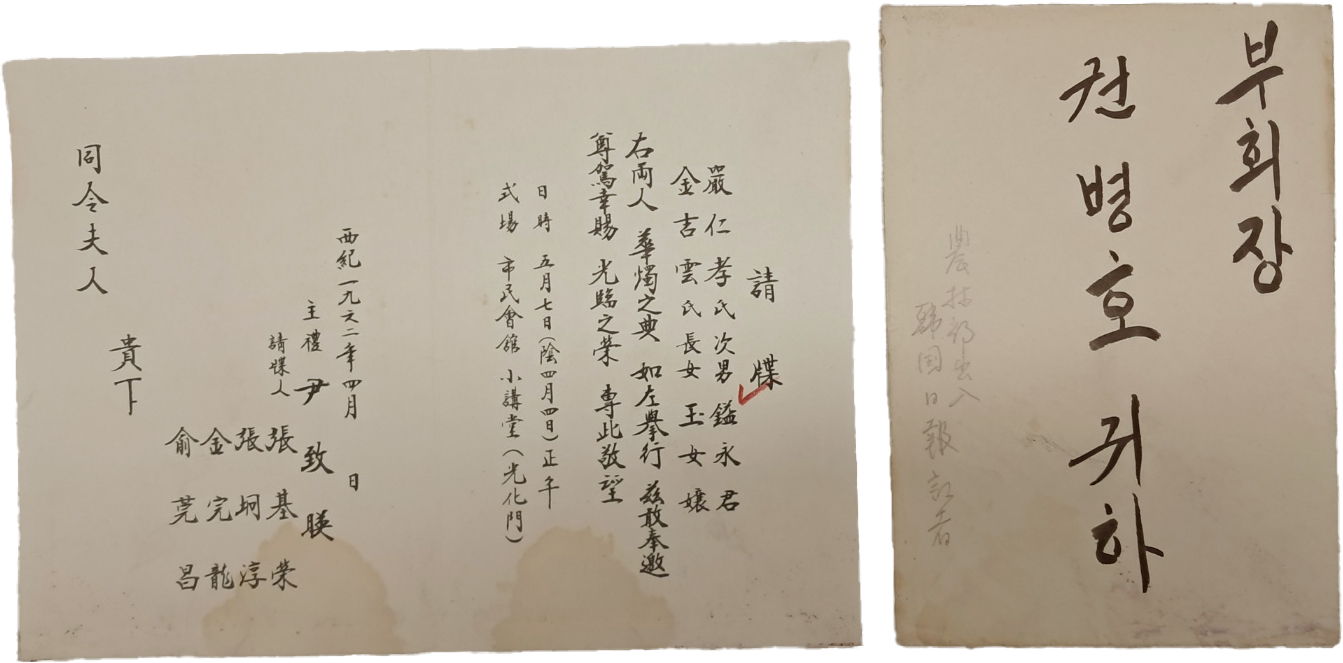 請牒
嚴仁孝氏次男 鎰永君
金吉雲氏長女 玉女孃
右両人 華燭之典 如左擧行 玆敢奉邀
尊駕幸賜 光臨之榮 專此敬望
日時 五月七日(陰四月四日)正午
式場 市民會館 小講堂(光化門)
西紀一九六二年四月 日
主禮 尹致暎
請牒人 張基榮
張坰淳
金完龍
俞莞昌
貴下
同令夫人
부회장
권병호 귀하
農林部出入
韓国日報記者